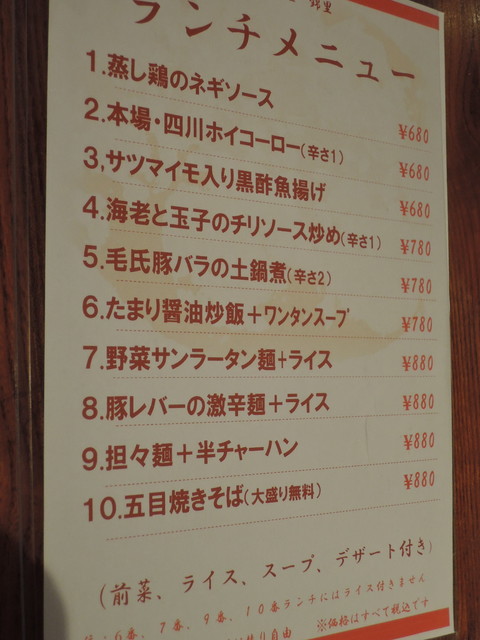 錦里
ランチメニュー
1.蒸し鶏のネギソース ¥680
2.本場・四川ホイコーロー(辛さ1) ¥680
3,サツマイモ入り黒酢魚揚げ ¥680
4.海老と玉子のチリソース炒め(辛さ1) ¥780
5.毛氏豚バラの土鍋煮(辛さ2) ¥780
6.たまり醤油炒飯+ワンタンスープ ¥780
7.野菜サンラータン麺+ライス ¥880
8.豚レバーの激辛麺+ライス ¥880
9.担々麺+半チャーハン ¥880
10.五目焼きそば(大盛り無料) ¥880
(前菜、ライス、スープ、デザート付き)
6番、7番、9番、10番ランチにはライス付きません
※価格はすべて税込です
自由